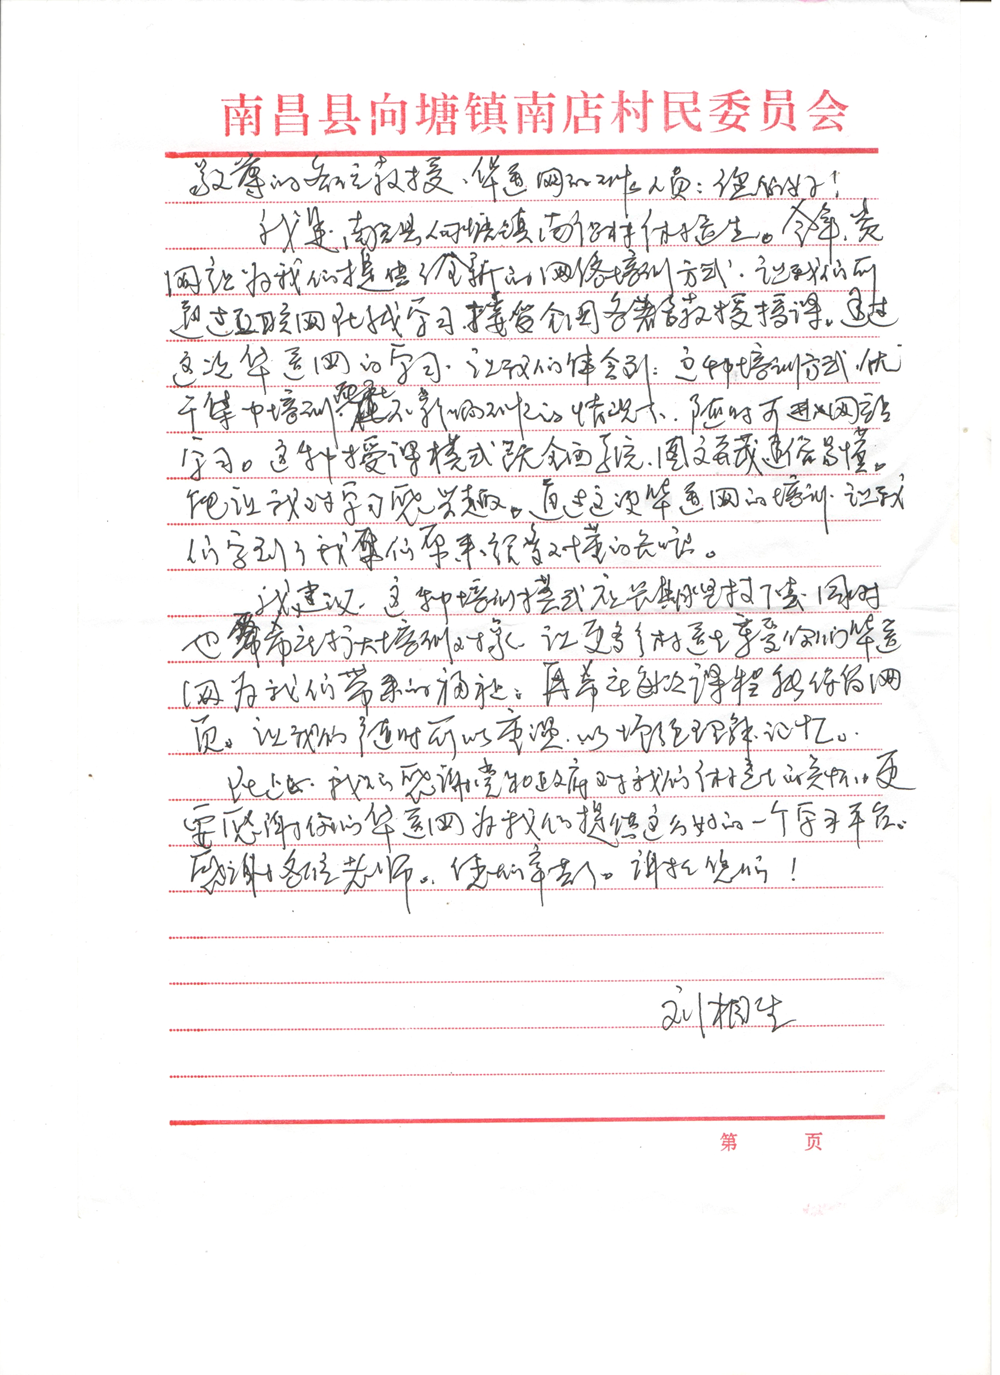 南昌县向塘镇南店村民委员会
敬尊的各位教授、华医网的工作人员：您们好！
我是南昌县向塘镇南店村村医生。今年，贵
网站为我们提供了全新的网络培训方式，让我们可
通过互联网在线学习，接受全国各著名教授授课。通过
这次华医网的学习，让我们体会到：这种培训方式优
于集中培训，在不影响工作的情况下，随时可进网站
学习。这种授课模式既全面系统，图文并茂通俗易懂。
他让我对学习感兴趣。通过这次华医网的培训，让我
们学到了我们原来没有对懂的知识。
我建议，这种培训模式应长期坚持下去，同时
也希望扩大培训对象，让更多村医生享受你们华医
网为我们带来的福祉；再希望每次课程能保留网
页。让我们随时可以重温，以增强理解记忆。
在此，我们感谢党和政府对我们村医生的关怀，更
要感谢你们华医网为我们提供这么好的一个学习平台。
感谢各位老师。您们辛苦了。谢谢您们！
刘相生
第 页